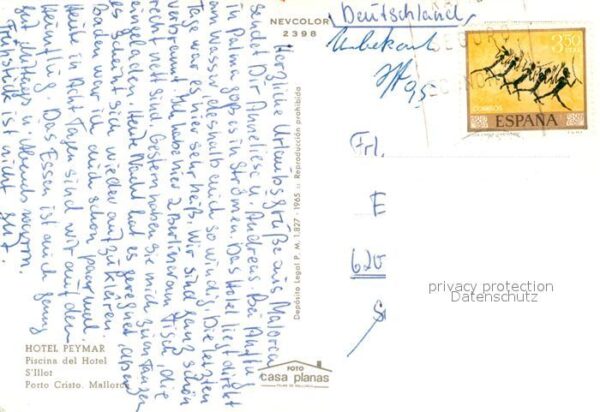 NEVCOLOR
2398
Deutschland
Unbekannt
3,50
PTAS
CORREOS
ESPAÑA
Frl.
E
620
S
privacy protection
Datenschutz
Herzliche Urlaubsgrüße aus Malorca
sendet Dir Anneliese u. Andreas. Bei Anflug
in Palma gab es in Strömen. Das Hotel liegt direkt
am Wasser, deshalb auch so windig. Die letzten
Tage war es hier sehr heiß. Wir sind ganz schön
verbrannt. Wir haben hier 2 Berliner am Tisch, die
recht nett sind. Gestern haben Sie mich zum Tanzen
eingeladen. Heute Nacht hat es geregnet, aber
es scheint sich wieder aufzuklären.
Baden war ich auch schon paarmal.
Heute in acht Tagen sind wir auf dem
Heimflug. Das Essen ist auch genug
auf mittags u. abends warm.
Frühstück ist nicht gut.
Depósito Legal P. M. 1.827 - 1965 :: Reproducción prohibida
HOTEL PEYMAR
Piscina del Hotel
S'Illot
Porto Cristo. Mallorca
FOTO
casa planas